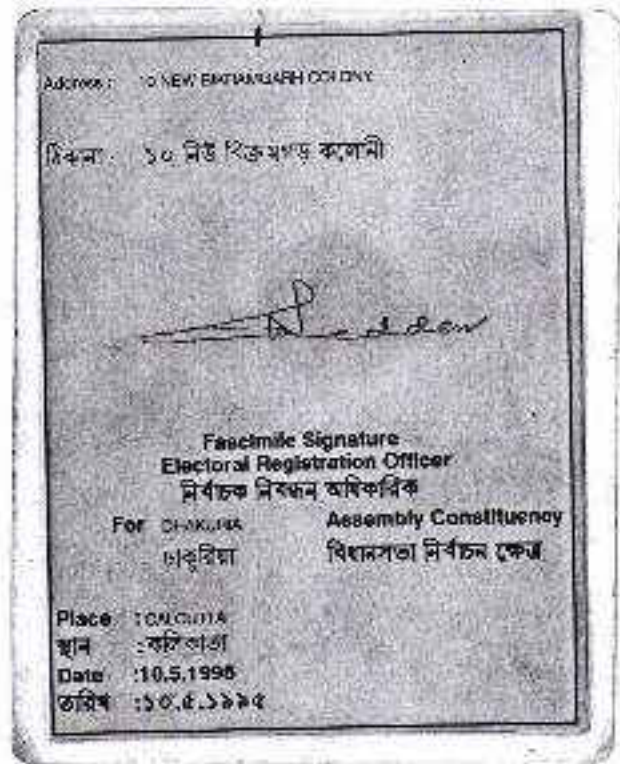 Address : 10 NEW BIKRAMGARH COLONY
ঠিকানা : ১০ নিউ বিক্রমগড় কলোনী
Fascimile Signature
Electoral Registration Officer
নির্বাচক নিবন্ধন আধিকারিক
For DHAKURIA Assembly Constituency
ঢাকুরিয়া বিধানসভা নির্বাচন ক্ষেত্র
Place : CALCUTTA
স্থান : কলিকাতা
Date :10.5.1995
তারিখ :১০.৫.১৯৯৫